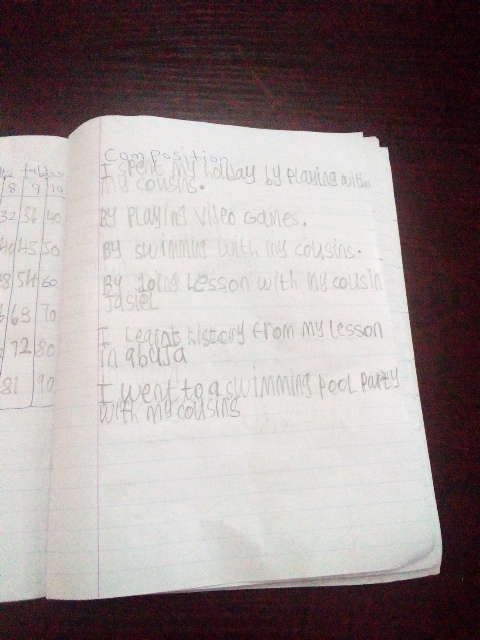 Composition
I spent my holiday by playing with
my cousins.
By playing video Games.
By swimming with my cousins.
By doing Lesson with my cousin
Jasiel
I Learnt history from my Lesson
in abuja
I went to a swimming pool party
with my cousins
8 9 10
32 36 40
40 45 50
48 54 60
63 70
72 80
81 90